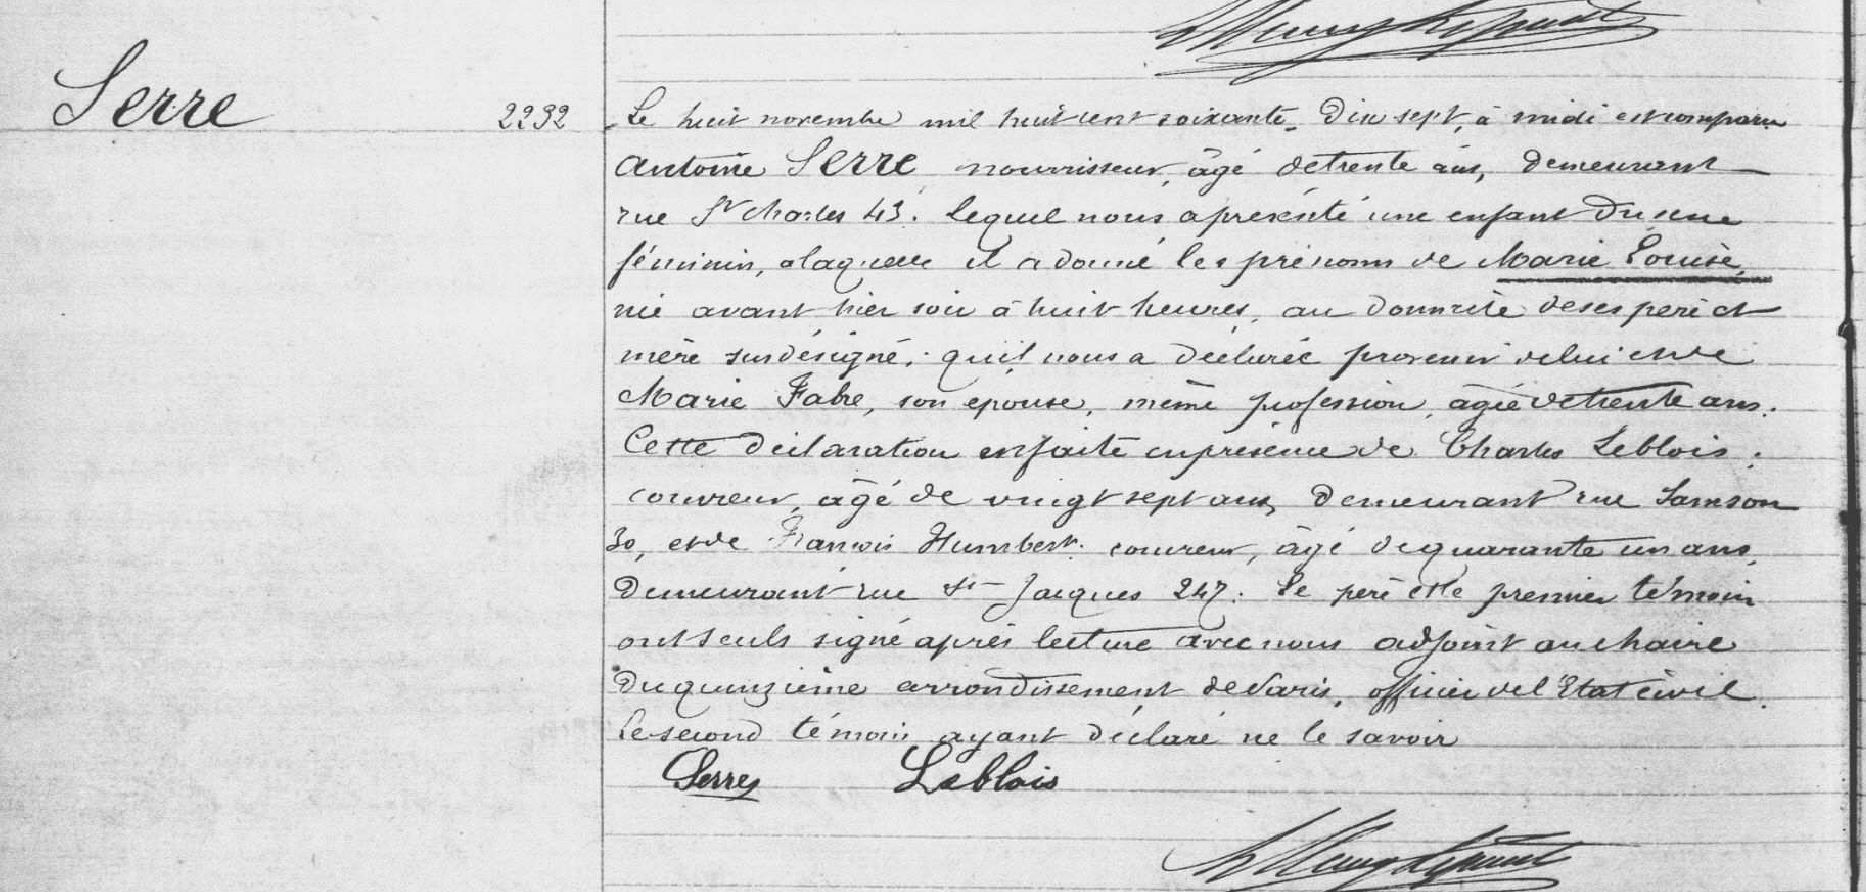 Serre
2232
Le huit novembre mil huit cent soixante-dix sept, à midi est comparu
Antoine Serre nourrisseur, âgé de trente ans, demeurant
rue St Charles 43. lequel nous a présenté une enfant du sexe
féminin, a laquelle il a donné les prénoms de Marie Louise,
née avant hier soir à huit heures, au domicile de ses père et
mère susdésigné, qu'il nous a déclarée provenir de lui et de
Marie Fabre, son epouse, même profession, agée de trente ans.
Cette déclaration est faite en présence de Charles Leblois,
couvreur, âgé de vingt sept ans, demeurant rue Samson
30, et de François Humbert, couvreur, âgé de quarante un ans,
demeurant rue St Jacques 247. Le père et le premier témoin
ont seuls signé après lecture avec nous adjoint au Maire
du quinzième arrondissement de Paris, officier de l'Etat civil.
Le second témoin ayant déclaré ne le savoir
Serres Leblois